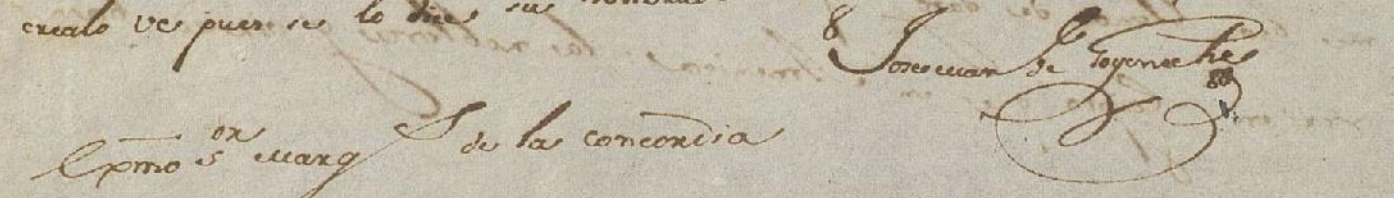 crealo Ve pues se lo dice su
Jose Man de Goyeneche
Exmo Sor Marqs de la concordia